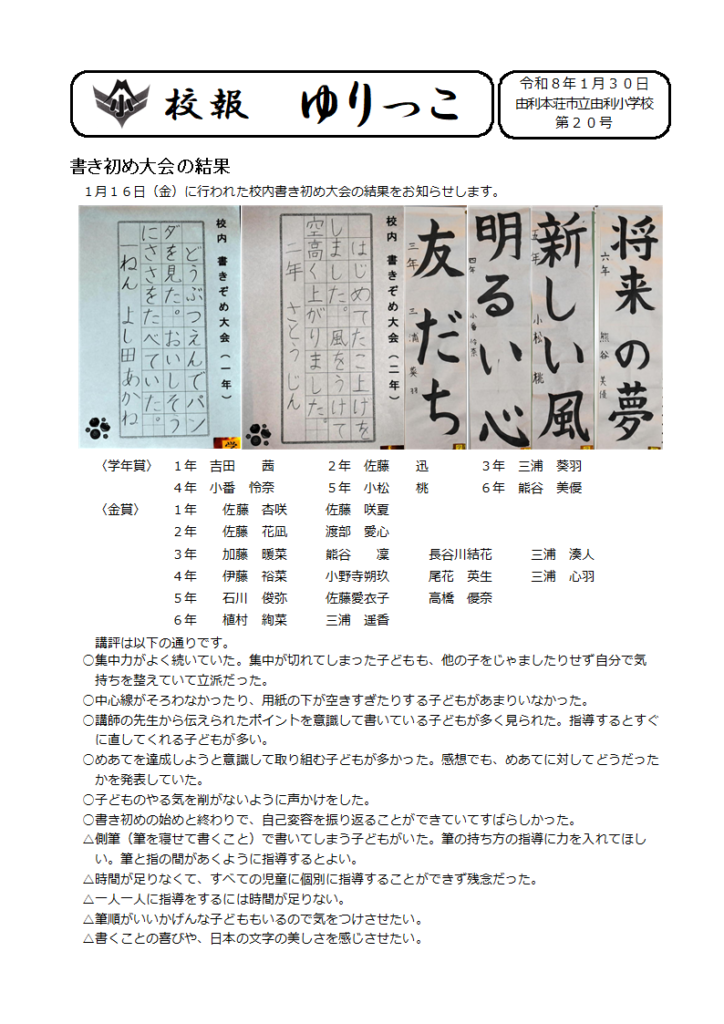 校報　ゆりっこ
令和８年１月３０日
由利本荘市立由利小学校
第２０号
書き初め大会の結果
１月１６日（金）に行われた校内書き初め大会の結果をお知らせします。
校内　書きぞめ大会（一年）
どうぶつえんでパン
ダを見た。おいしそう
にささをたべていた。
一ねん　よし田あかね
校内　書きぞめ大会（二年）
はじめてたこ上げを
しました。風をうけて
空高く上がりました。
二年　さとうじん
友だち
三年　三浦葵羽
明るい心
四年　小番怜奈
新しい風
五年　小松桃
将来の夢
六年　熊谷美優
〈学年賞〉　１年　吉田　茜　２年　佐藤　迅　３年　三浦　葵羽
４年　小番　怜奈　５年　小松　桃　６年　熊谷　美優
〈金賞〉　１年　佐藤　杏咲　佐藤　咲夏
２年　佐藤　花凪　渡部　愛心
３年　加藤　暖菜　熊谷　凜　長谷川結花　三浦　湊人
４年　伊藤　裕菜　小野寺朔玖　尾花　英生　三浦　心羽
５年　石川　俊弥　佐藤愛衣子　高橋　優奈
６年　植村　絢菜　三浦　遥香
講評は以下の通りです。
○集中力がよく続いていた。集中が切れてしまった子どもも、他の子をじゃましたりせず自分で気
持ちを整えていて立派だった。
○中心線がそろわなかったり、用紙の下が空きすぎたりする子どもがあまりいなかった。
○講師の先生から伝えられたポイントを意識して書いている子どもが多く見られた。指導するとすぐ
に直してくれる子どもが多い。
○めあてを達成しようと意識して取り組む子どもが多かった。感想でも、めあてに対してどうだった
かを発表していた。
○子どものやる気を削がないように声かけをした。
○書き初めの始めと終わりで、自己変容を振り返ることができていてすばらしかった。
△側筆（筆を寝せて書くこと）で書いてしまう子どもがいた。筆の持ち方の指導に力を入れてほし
い。筆と指の間があくように指導するとよい。
△時間が足りなくて、すべての児童に個別に指導することができず残念だった。
△一人一人に指導をするには時間が足りない。
△筆順がいいかげんな子どももいるので気をつけさせたい。
△書くことの喜びや、日本の文字の美しさを感じさせたい。